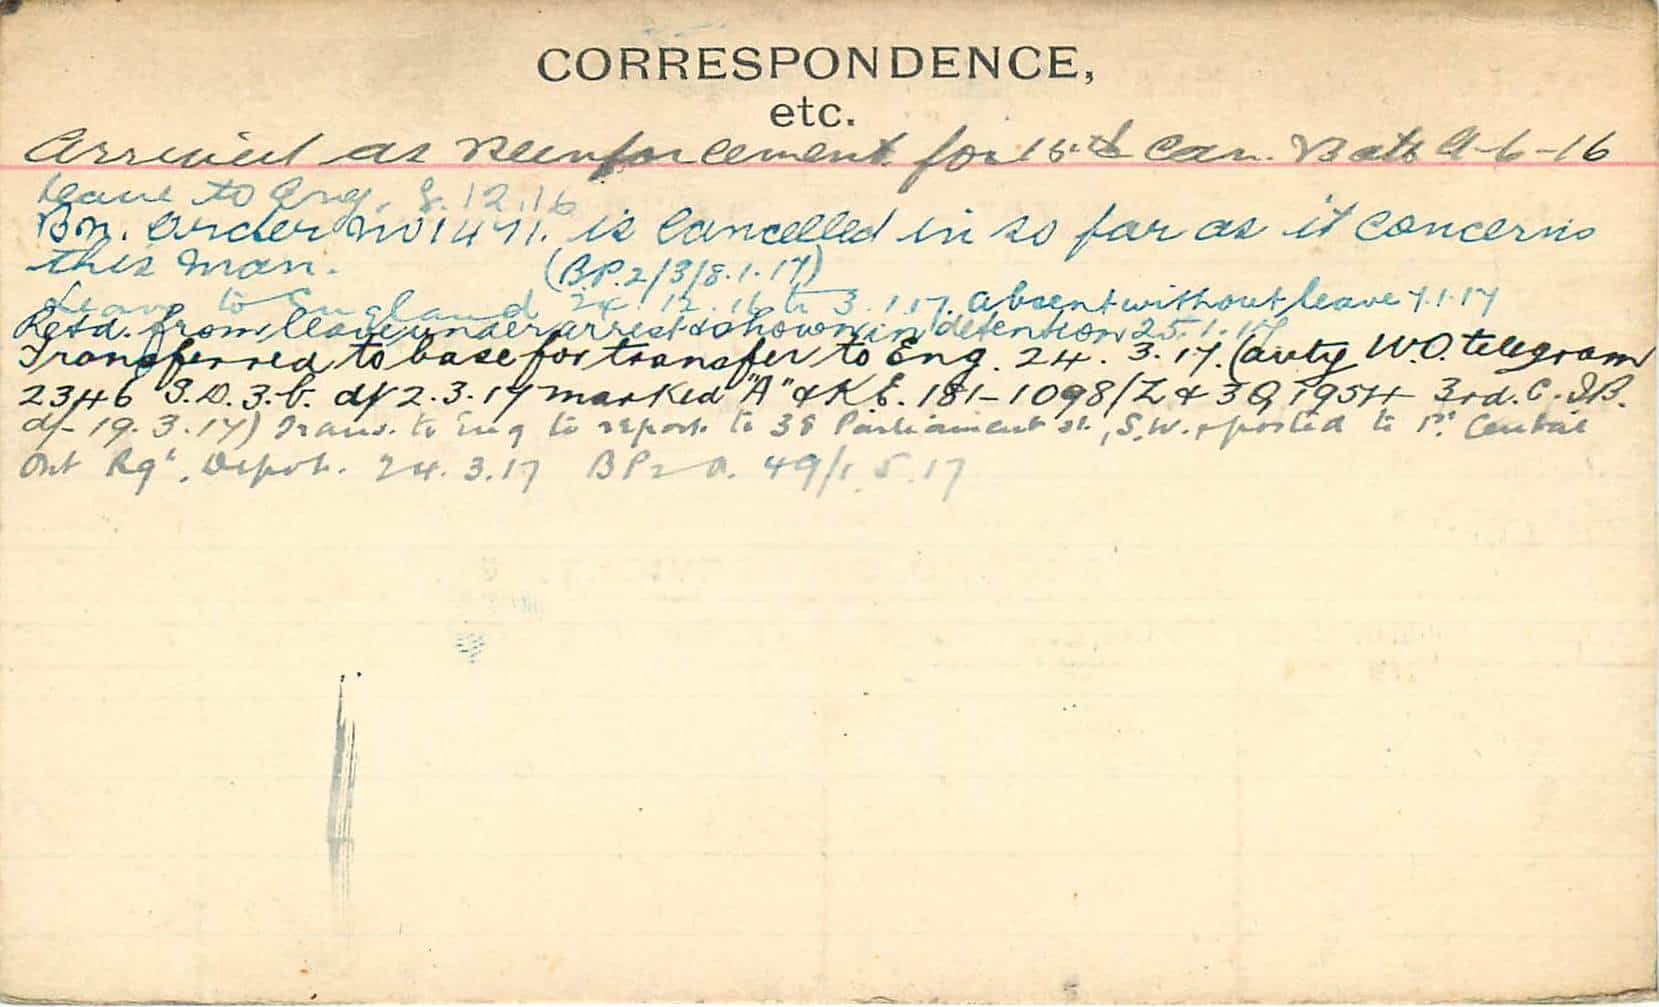 CORRESPONDENCE,
etc.
Arrived as Reinforcement for 15th Can. Batt 9-6-16
Leave to Eng. 8.12.16
Bn. Order No 1471. is cancelled in so far as it concerns
this man. (B.P.2/3/8.1.17)
Leave to England 24.12.16 to 3.1.17. absent without leave 7.1.17
Retd. from leave under arrest & shown in detention 25.1.17
Transferred to base for transfer to Eng. 24.3.17. (auty W.O. telegram
2346 S.D.3.b. d/ 2.3.17 marked "A" & K.E. 181-1098/Z & 3Q 1954 3rd. C.I.B.
d/- 19.3.17) Trans. to Eng to report to 38 Parliament St, S.W. & posted to 1st Central
Ont Rgt. Depot. 24.3.17 BP2 49/1.5.17